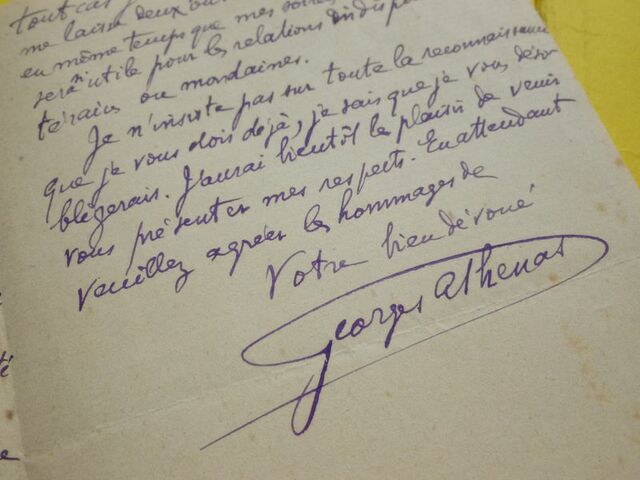 tout cas
me laisse deux ou
en même temps que mes soirées
sera utile pour les relations
téraires ou mondaines.
Je n'insiste pas sur toute la reconnaissance
que je vous dois déjà, je sais que je vous déso-
bligerais. J'aurai bientôt le plaisir de venir
vous présenter mes respects. En attendant
veuillez agréer les hommages de
Votre bien dévoué
Georges Athenas
té
e